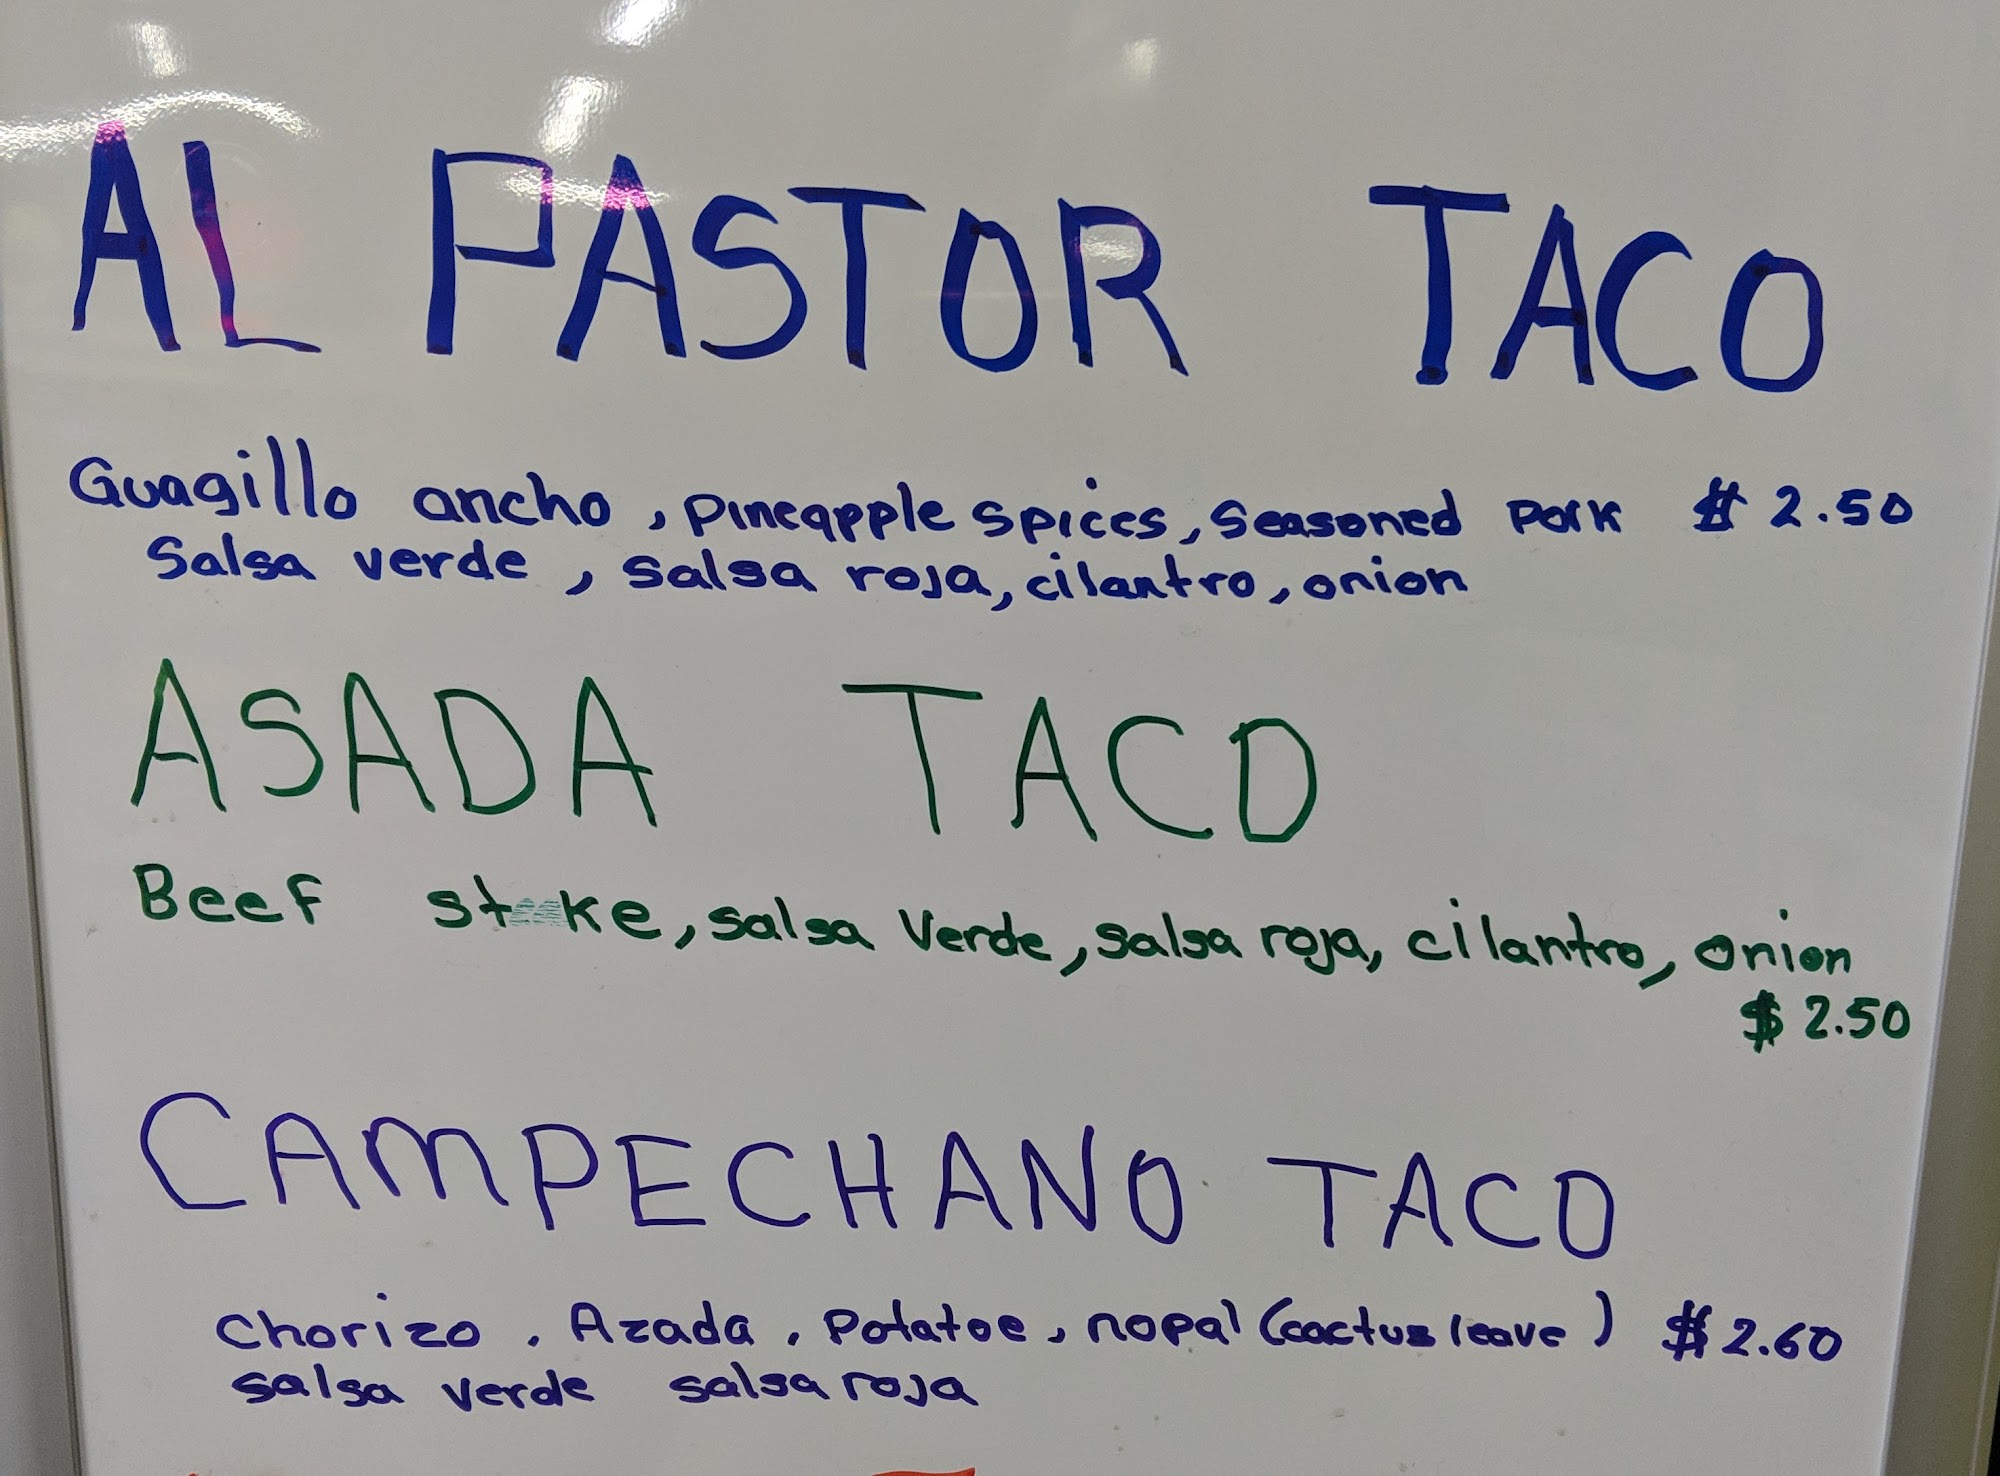 AL PASTOR TACO
Guagillo ancho, Pineapple spices, seasoned pork $ 2.50
Salsa verde, salsa roja, cilantro, onion
ASADA TACO
Beef stake, salsa verde, salsa roja, cilantro, onion
$ 2.50
CAMPECHANO TACO
chorizo, Azada, Potatoe, nopal (cactus leave) $ 2.60
salsa verde salsa roja